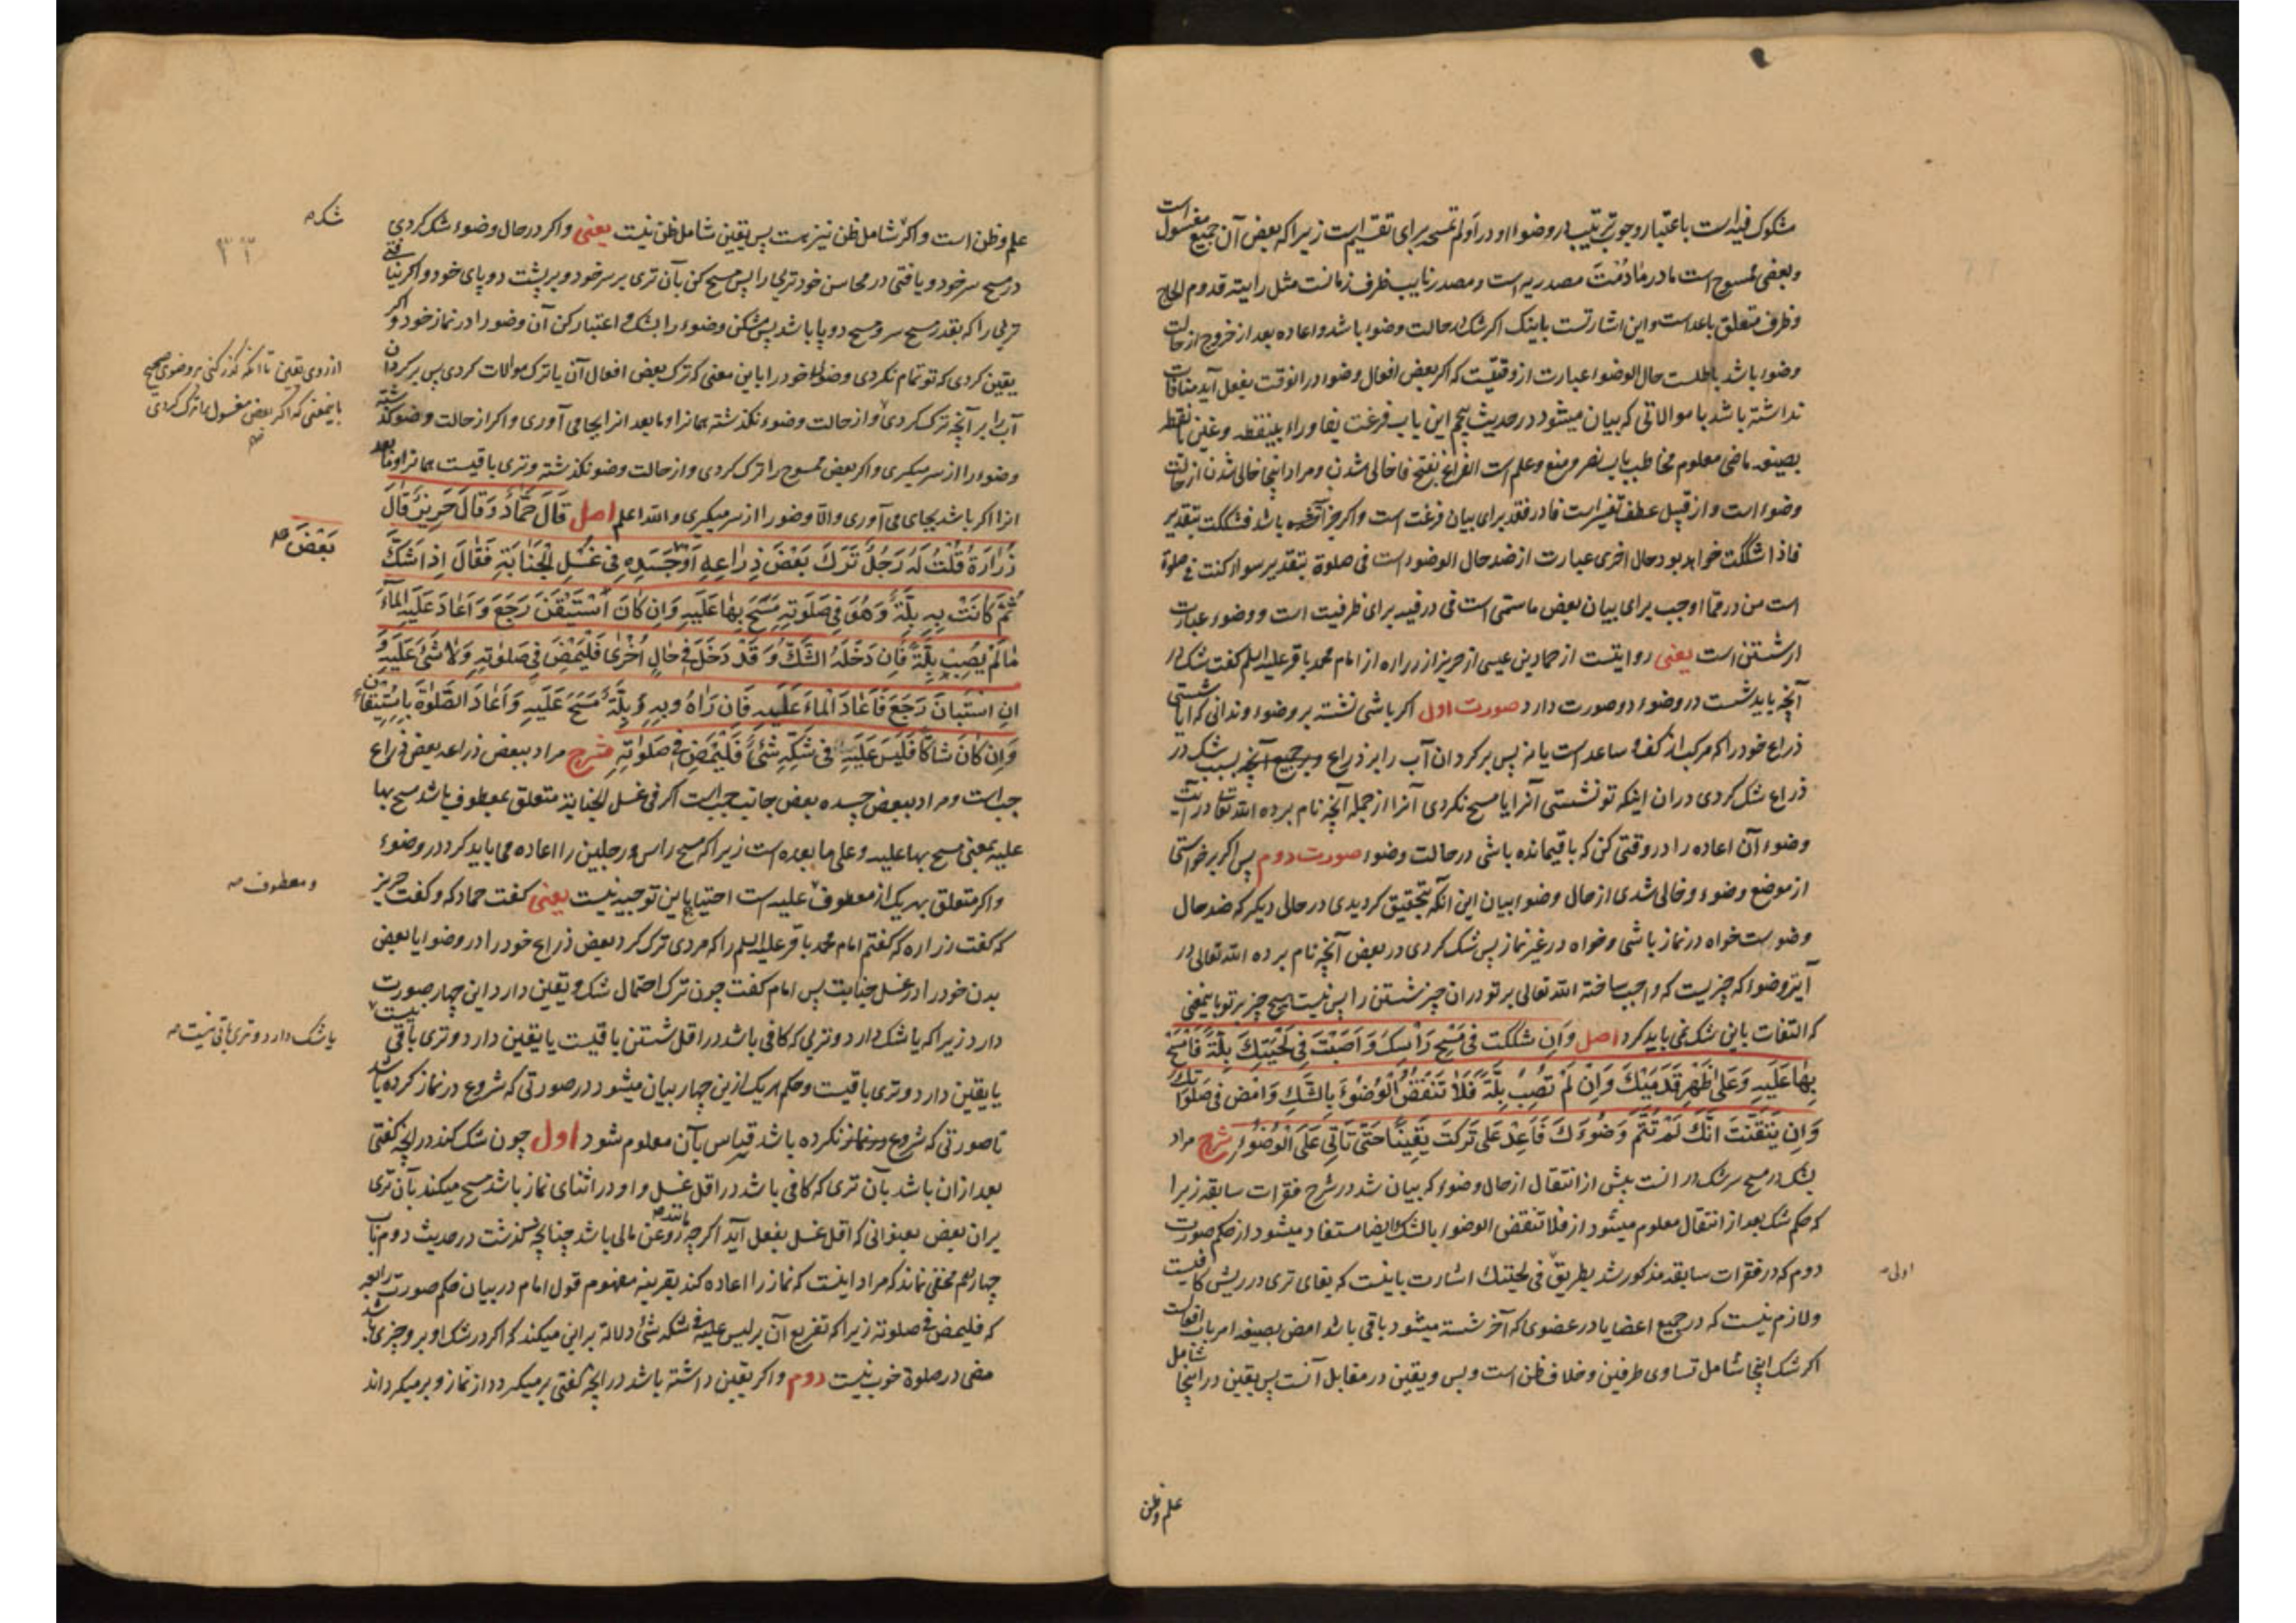 مشکوک فیه است باعتبار وجوب ترتیب در وضوء او در او لم تمسحه برای تقسیم است زیرا که بعض آن جمیع مغسول است
وبعضی ممسوح است ما در مادُمْتَ مصدریه است ومصدر نایب ظرف زمانست مثل رایته قدوم الحاج
وظرف متعلق باعد است واین اشارتست باینکه اگر شک در حالت وضوء باشد واعاده بعد از خروج از حالت
وضوء باشد باطلست حال الوضوء عبارت از وقتیست که اگر بعض افعال وضوء در انوقت بفعل آید منافات
نداشته باشد با موالاتی که بیان میشود در حدیث پنجم این باب فرغت بفا وراء بینقطه وغین بانقطه
بصیغه ماضی معلوم مخاطب باب نصر ومنع وعلم است الفراغ بفتح فا خالی شدن ومراد اینجا خالی شدن از حالت
وضوء است واز قبیل عطف تفسیر است فا در فقد برای بیان فرغت است واگر جزا شده باشد فشککت بتقدیر
فاذا شککت خواهد بود حال اخری عبارت از ضد حال الوضوء است فی صلوة بتقدیر سواء کنت فی صلوة
است من در مما اوجب برای بیان بعض ما سمی است فی در فیه برای ظرفیت است ووضوء عبارت
از شستن است یعنی روایتست از حماد بن عیسی از حریز از زراره از امام محمد باقر علیه السلم گفت شک در
آنچه باید شست در وضوء دو صورت دارد صورت اول اکر باشی نشسته بر وضوء وندانی که ایا شستی
ذراع خود را که مرکب از کف وساعد است یا نه پس بر کردان آب را بر ذراع وبر جمیع آنچه بسبب شک در
ذراع شک کردی در ان اینکه تو نشستی آنرا یا مسح نکردی آنرا از جمله آنچه نام برده الله تعالی در آیت
وضوء آن اعاده را در وقتی کن که باقیمانده باشی در حالت وضوء صورت دوم پس اکر برخواستی
از موضع وضوء وخالی شدی از حال وضوء بیان این آنکه بتحقیق کردیدی در حالی دیکر که ضد حال
وضوست خواه در نماز باشی وخواه در غیر نماز پس شک کردی در بعض آنچه نام برده الله تعالی در
آیه وضوء که چیزیست که واجب ساخته الله تعالی بر تو در ان چیز شستن را پس نیست هیچ چیز بر تو باینمعنی
که التفات باین شک نمی باید کرد اصل وَاِن شَكَكتَ فِی مَسْحِ رَاْسِكَ وَاَصَبْتَ فِی لِحْیَتِكَ بِلَّةً فَامْسَحْ
بِهَا عَلَیهِ وَعَلی ظَهْرِ قَدَمَیْكَ وَاِنْ لَمْ تُصِبْ بِلَّةً فَلَا تَنْقُضِ الْوُضُوءَ بِالشَّكِ وَامْضِ فی صَلَوتِكَ
وَاِن یَتَقَّنْتَ اَنَّكَ لَمْ تُتِمَّ وَضُوءَكَ فَاَعِدْ عَلی تَرَكتَ یَقِینًا حَتّی تَاتِیَ عَلَی الْوُضُوءِ شرح مراد
بشک در مسح سر شک در انست پیش از انتقال از حال وضوء که بیان شد در شرح فقرات سابقه زیرا
که حکم شک بعد از انتقال معلوم میشود از فلا تنقض الوضوء بالشک ایضا مستفاد میشود از حکم صورت
دوم که در فقرات سابقه مذکور شد بطریق فی لحیتك اشارت باینست که بقای تری در ریش کافیست
اولی صه
ولازم نیست که در جمیع اعضا یا در عضوی که آخر شسته میشود باقی باشد امض بصیغه امر باب افعالست
اکر شک اینجا شامل تساوی طرفین وخلاف ظن است وبس ویقین در مقابل آنست پس یقین در اینجا شامل
علم وظن
علم وظن است واکر شامل ظن نیز هست پس یقین شامل ظن نیست یعنی واکر در حال وضوء شک کردی
شک صه
در مسح سر خود ویافتی در محاسن خود تریی را پس مسح کن بآن تری بر سر خود وبر پشت دو پای خود واکر نیافتی
تریی را که بقدر مسح سر ومسح دو پا باشد پس مشکن وضوء را بشک واعتبار کن آن وضو را در نماز خود واکر
یقین کردی که تو تمام نکردی وضوء خود را باین معنی که ترک بعض افعال آن یا ترک موالات کردی پس برکردان
از روی یقین تا آنکه گذر کنی بر وضوی صحیح
آب را بر آنچه ترک کردی واز حالت وضوء نکذشته همانرا وما بعد انرا بجا می آوری واکر از حالت وضو کذشته
باینمعنی که اکر بعض مغسول را ترک کردی
وضوء را از سر میکیری واکر بعض ممسوح را ترک کردی واز حالت وضو نکذشته وتری باقیست همانرا وما بعد
انرا اکر باشد بجای می آوری والا وضو را از سر میکیری والله اعلم اصل قَالَ حَمَّادٌ وَقَالَ حَرِیزٌ قَالَ
زُرَارَةُ قُلْتُ لَهُ رَجُلٌ تَرَكَ بَعْضَ ذِرَاعِهِ اَوْ جَسَدِهِ فِی غُسْلِ الْجَنَابَةِ فَقَالَ اِذَا شَكَّ
بَعْضَ صه
ثُمَّ كَانَتْ بِهِ بِلَّةٌ وَهُوَ فِی صَلَوتِهِ مَسَحَ بِهَا عَلَیهِ وَاِن كَانَ اسْتَیْقَنَ رَجَعَ وَاَعَادَ عَلَیهِ الْمَاءَ
مَا لَمْ یُصِبْ بِلَّةً فَاِن دَخَلَهُ الشَّكُّ وَقَدْ دَخَلَ فی حَالٍ اُخْری فَلْیَمْضِ فی صَلوتِهِ وَلَا شَیْءَ عَلَیهِ وَ
اِنِ اسْتَبَانَ رَجَعَ فَاَعَادَ الْمَاءَ عَلَیهِ فَاِن رَاهُ وَبِهِ بِلَّةٌ مَسَحَ عَلَیهِ وَاَعَادَ الصَّلوةَ بِاسْتِیقَانٍ
وَاِن كَانَ شَاكًّا فَلَیْسَ عَلَیهِ فی شَكِّهِ شَیْءٌ فَلْیَمْضِ فی صَلَوتِهِ شرح مراد ببعض ذراعه بعض ذراع
چپ است ومراد ببعض جسده بعض جانب چپ است اکر فی غسل الجنابة متعلق بمعطوف باشد مسح بها
علیه بمعنی مسح بها علیه وعلی ما بعده است زیرا که مسح راس ورجلین را اعاده می باید کرد در وضوء
واکر متعلق بهریک از معطوف علیه است احتیاج باین توجیه نیست یعنی گفت حماد که وگفت حریز
ومعطوف صه
که گفت زراره که گفتم امام محمد باقر علیه السلم را که مردی ترک کرد بعض ذراع خود را در وضو یا بعض
بدن خود را در غسل جنابت پس امام گفت چون ترک احتمال شک ویقین دارد این چهار صورت
دارد زیرا که یا شک دارد وتریی که کافی باشد در اقل شستن باقیست یا یقین دارد وتری باقی نیست
یا شک دارد وتری باقی نیست صه
یا یقین دارد وتری باقیست وحکم هریک ازین چهار بیان میشود در صورتی که شروع در نماز کرده باشد
تا صورتی که شروع در نماز نکرده باشد قیاس بآن معلوم شود اول چون شک کند در انچه گفتی
بعد از ان باشد بآن تری که کافی باشد در اقل غسل واو در اثنای نماز باشد مسح میکند بآن تری
بران بعض بعنوانی که اقل غسل بفعل آید اکرچه مانند روغن مالی باشد چنانچه گذشت در حدیث دوم باب
چهاردهم مخفی نماند که مراد اینست که نماز را اعاده کند بقرینه مفهوم قول امام در بیان حکم صورت رابعه
که فلیمض فی صلوته زیرا که تفریع آن بر لیس علیه فی شکه شیء دلالة بر این میکند که اکر در شک او بر و چیزی باشد
مضی در صلوة خوب نیست دوم واکر یقین داشته باشد در انچه گفتی برمیکردد از نماز وبرمیکرداند